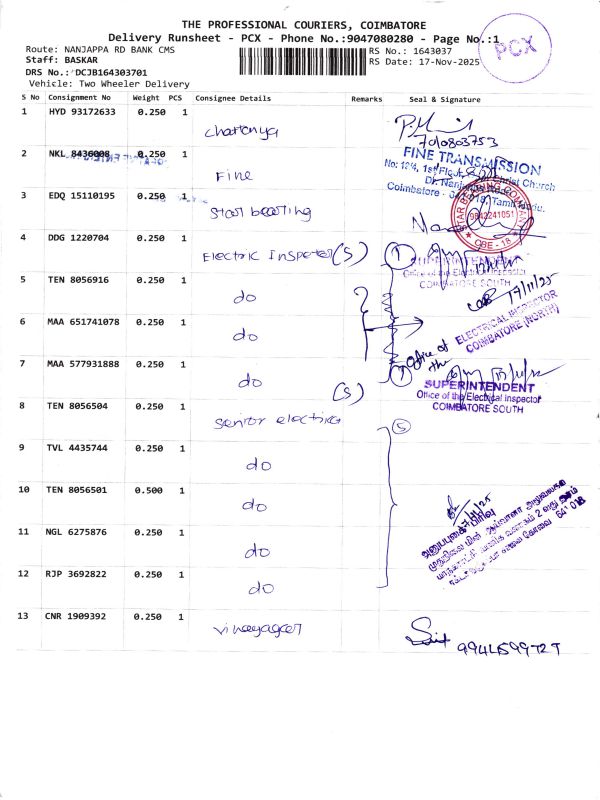 THE PROFESSIONAL COURIERS, COIMBATORE
Delivery Runsheet - PCX - Phone No.:9047080280 - Page No.:1
PCX
Route: NANJAPPA RD BANK CMS
RS No.: 1643037
Staff: BASKAR
RS Date: 17-Nov-2025
DRS No.: DCJB164303701
Vehicle: Two Wheeler Delivery
S No Consignment No Weight PCS Consignee Details Remarks Seal & Signature
1 HYD 93172633 0.250 1
chartanya
7010803753
2 NKL 8436008 0.250 1
Fine
FINE TRANSMISSION
No: 12/4, 1st Floor, Christ Church
Coimbatore - 641 018, Tamil Nadu.
3 EDQ 15110195 0.250 1
Star bearing
STAR BEARING COMPANY
9842241051
CBE - 18
4 DDG 1220704 0.250 1
Electric Inspector (S)
1
SUPERINTENDENT
Office of the Electrical Inspector
COIMBATORE SOUTH
5 TEN 8056916 0.250 1
do
17/11/25
6 MAA 651741078 0.250 1
do
2
Office of the
ELECTRICAL INSPECTOR
COIMBATORE (NORTH)
7 MAA 577931888 0.250 1
do
(S)
SUPERINTENDENT
Office of the Electrical Inspector
COIMBATORE SOUTH
8 TEN 8056504 0.250 1
senior electrica
5
9 TVL 4435744 0.250 1
do
10 TEN 8056501 0.500 1
do
அனுப்புகை பிரிவு
641 018
11 NGL 6275876 0.250 1
do
12 RJP 3692822 0.250 1
do
13 CNR 1909392 0.250 1
vinayagar